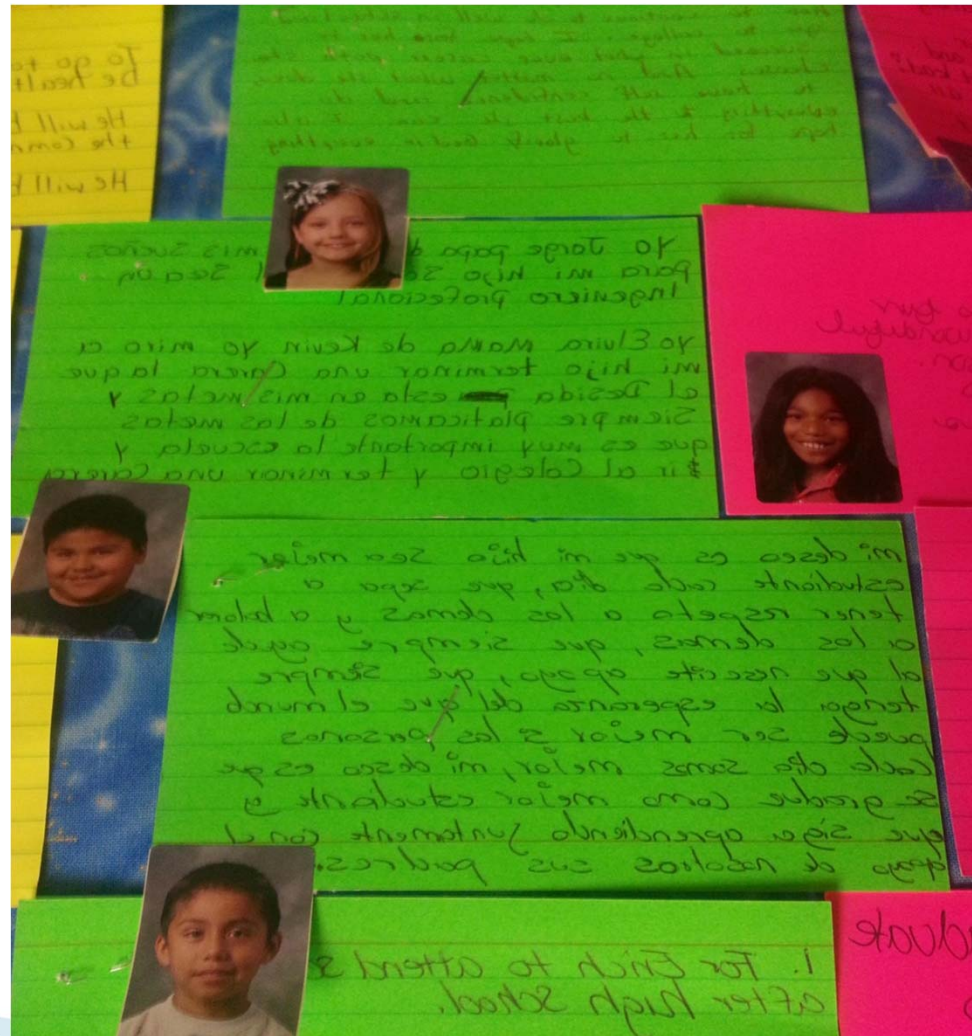 her to continue to do well in school and
go to college. I hope for her to
succeed in what ever career path she
chooses. And no matter what she does
to have self confidence and do
everything to the best she can. I also
hope for her to glorify God in everything
To go to
be healt
He will b
the comm
He will b
Yo Jorge papa d mis sueños
para mi hijo Se Sea un
Ingeniero profesional
Yo Elvira Mama de Kevin yo miro a
mi hijo terminar una Carera la que
el Desida esta en mis metas y
Siempre platicamos de las metas
que es muy importante la escuela y
ir al Colegio y terminar una Carera
wonderful
mi deseo es que mi hijo sea mejor
estudiante cada dia, que sepa a
tener respeto a los demas y a balorar
a los demas, que siempre ayude
al que nesecite apoyo, que siempre
tenga la esperanza del que el mundo
puede ser mejor si las personas
cada dia somos mejor, mi deseo es que
se gradue como mejor estudiante y
que siga aprendiendo juntamente con el
apoyo de nosotros sus padres
1. For Erich to attend s
after high school.
aduate